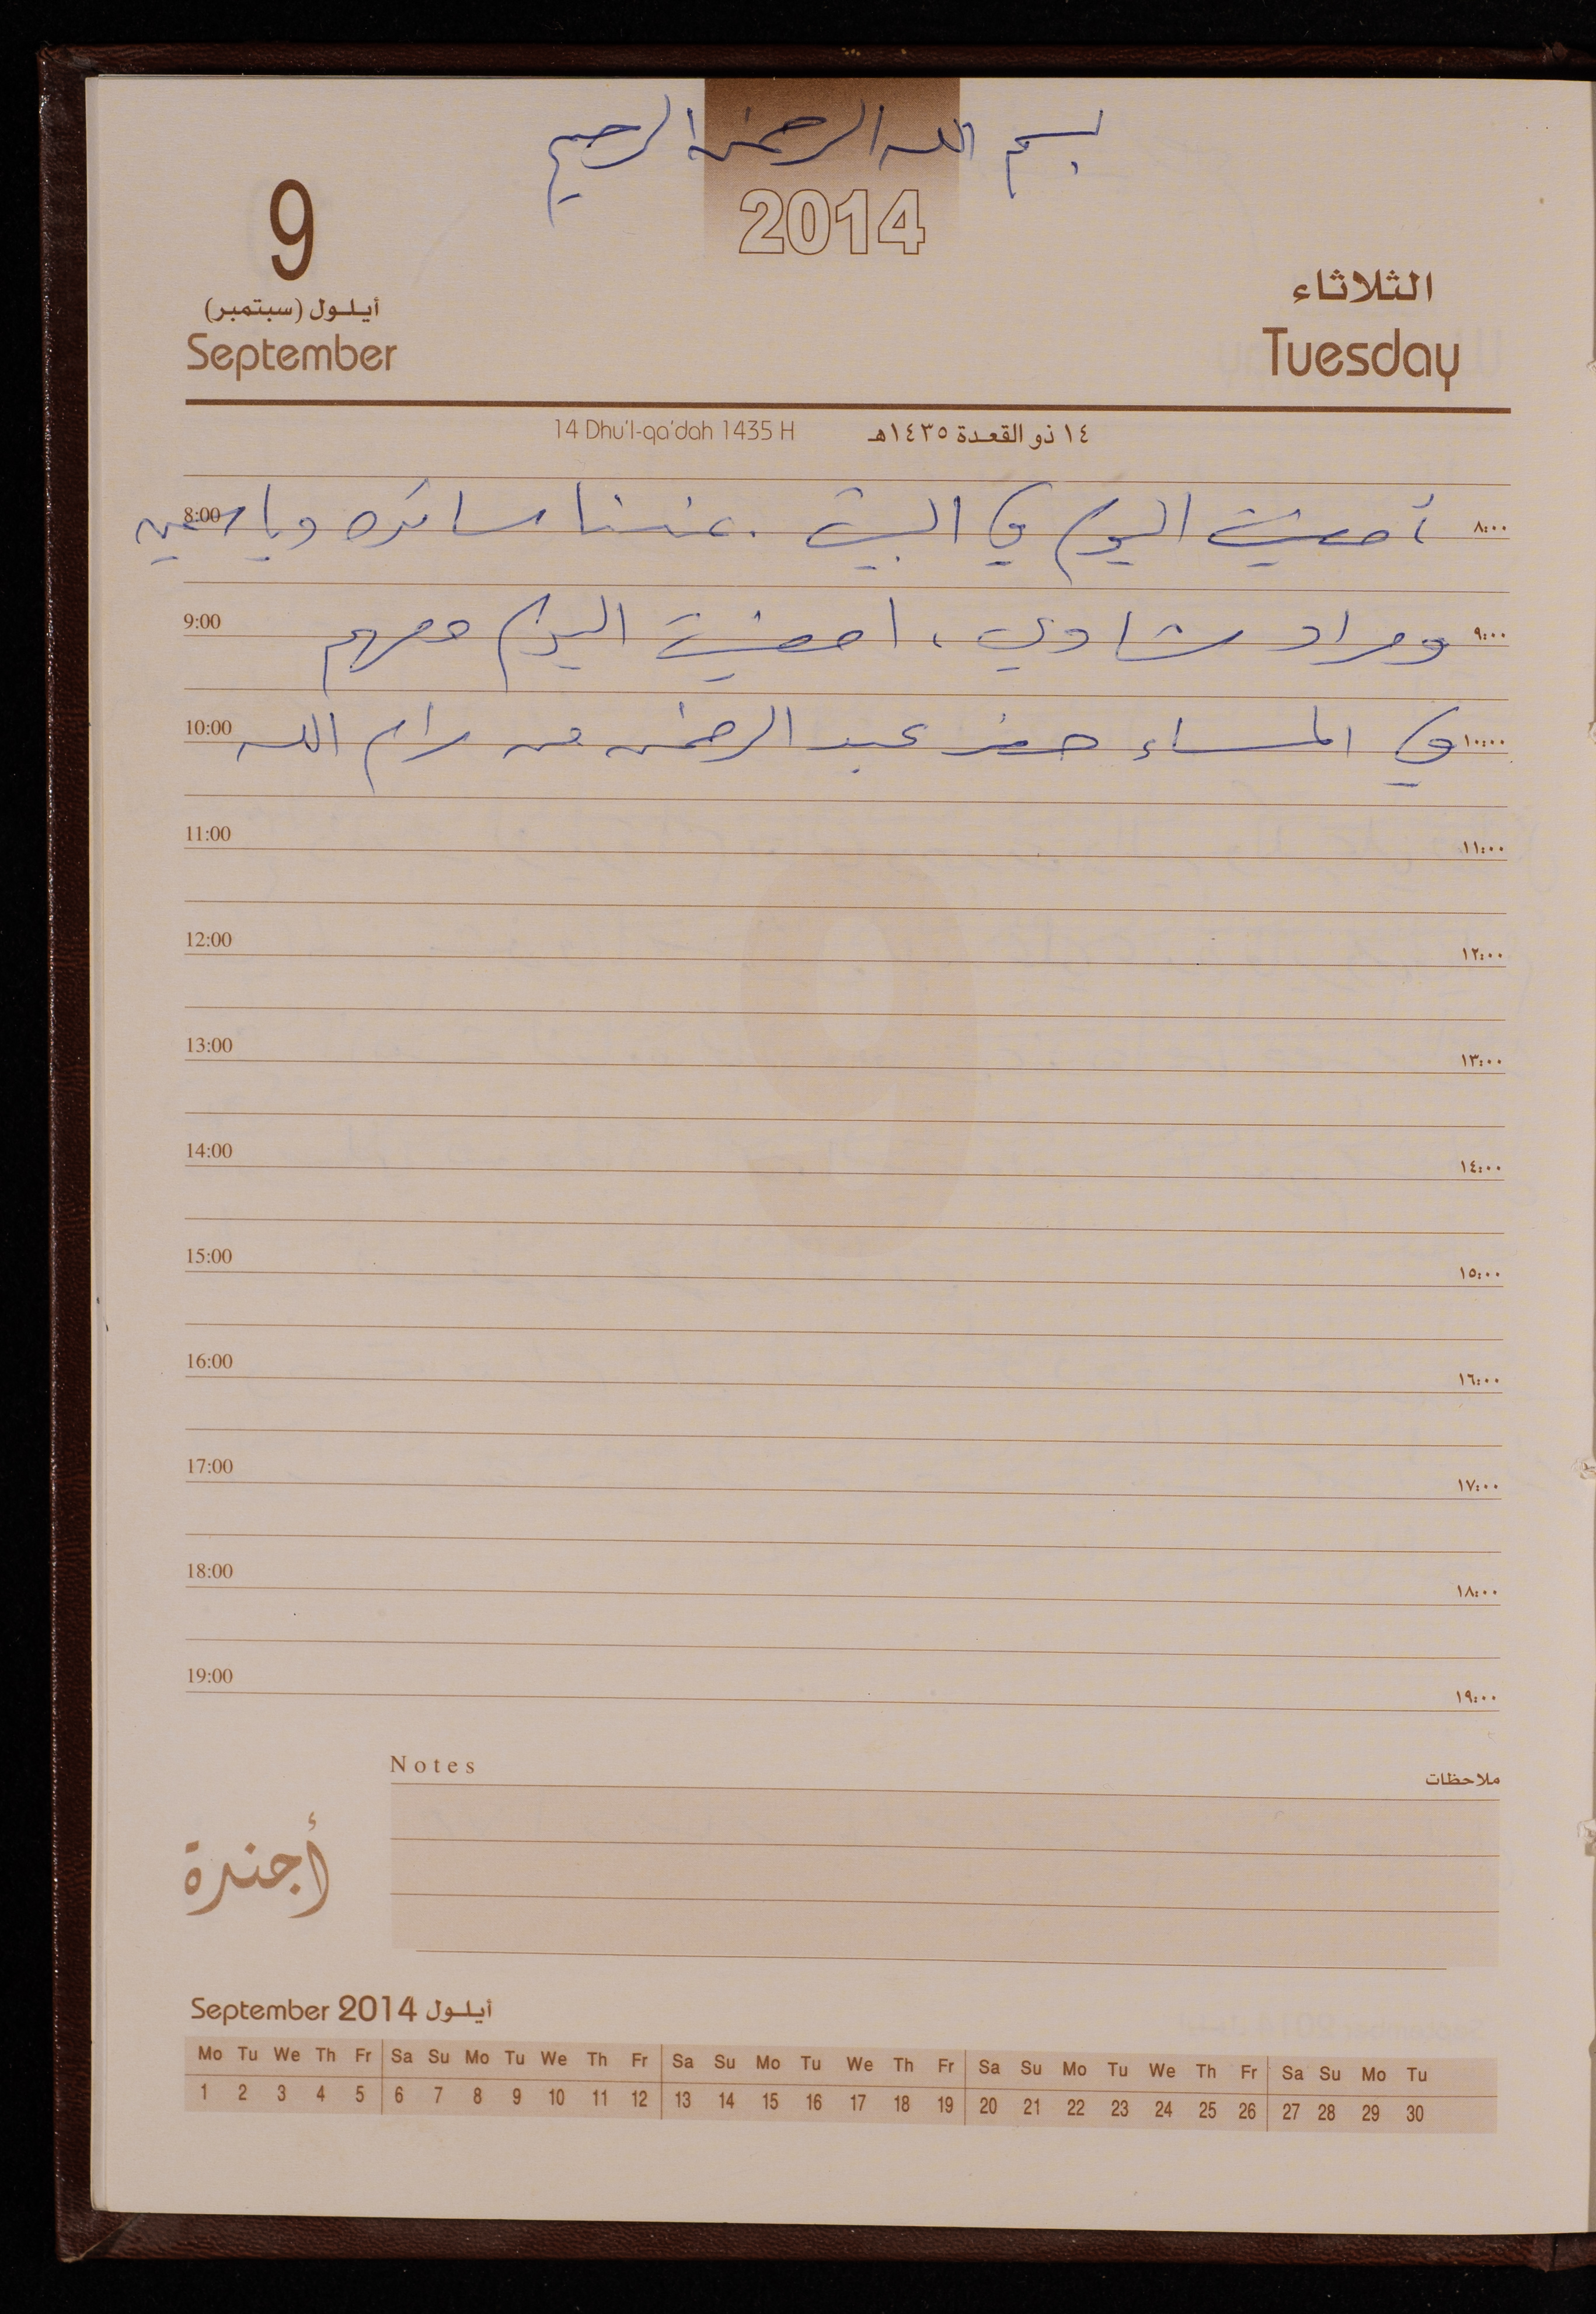 بسم الله الرحمن الرحيم
2014
9
أيلول (سبتمبر)
September
الثلاثاء
Tuesday
14 Dhu'l-qa'dah 1435 H
١٤ ذو القعدة ١٤٣٥هـ
8:00 أمضيت اليوم في البيت . عندنا سائده وياسمين ٨:٠٠
9:00 ومراد شادي ، امضيت اليوم معهم ٩:٠٠
10:00 في المساء حضر عبد الرحمن من رام الله ١٠:٠٠
11:00 ١١:٠٠
12:00 ١٢:٠٠
13:00 ١٣:٠٠
14:00 ١٤:٠٠
15:00 ١٥:٠٠
16:00 ١٦:٠٠
17:00 ١٧:٠٠
18:00 ١٨:٠٠
19:00 ١٩:٠٠
Notes ملاحظات
أجندة
September 2014 أيلول
Mo Tu We Th Fr Sa Su Mo Tu We Th Fr Sa Su Mo Tu We Th Fr Sa Su Mo Tu We Th Fr Sa Su Mo Tu
1 2 3 4 5 6 7 8 9 10 11 12 13 14 15 16 17 18 19 20 21 22 23 24 25 26 27 28 29 30